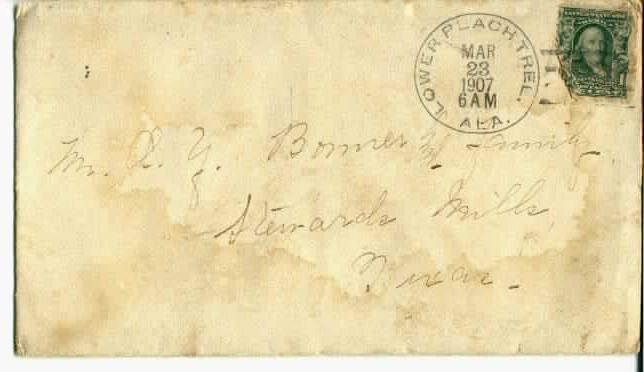 LOWER PEACH TREE.
MAR
23
1907
6 AM
ALA.
Mr. A. Y. Bonner & family
Stewards Mills
Texas